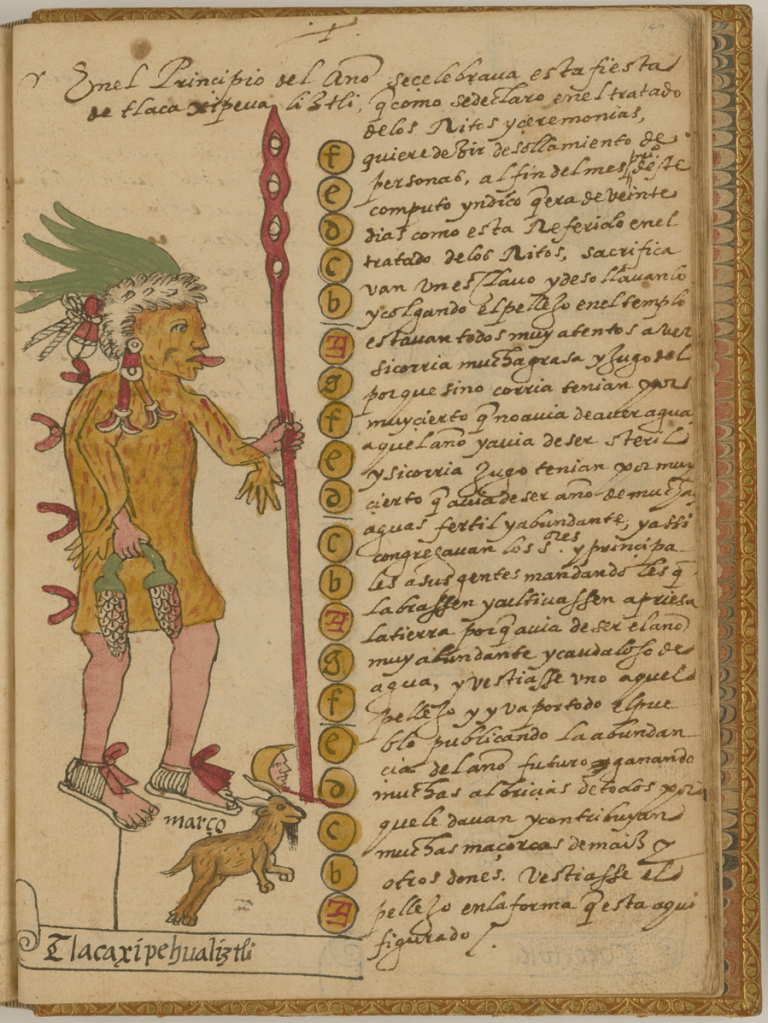 147
Enel Principio del Año secelebrava esta fiesta
de tlaca xipeva liztli, q̃ como sedeclaro enel tratado
delos Ritos y ceremonias,
quiere dezir desollamiento de
personas, al fin del mes pr̃o deste
computo yndico q̃ era de veinte
dias como esta Referido enel
tratado delos Ritos, sacrifica
van un esclavo y desollavanlo
y colgando el pellejo enel templo
estavan todos muy atentos a ver
si corria mucha grasa y Jugo del
porque sino corria tenian por
muy cierto q̃ no avia de aver agua
aquel año y avia de ser steril
y si corria Jugo tenian por muy
cierto q̃ avia de ser año de mucha
aguas fertil y abundante, y assi
congregavan los s.ores y principa
les a sus gentes mandando les q̃
labrassen y cultivassen apriesa
la tierra porq̃ avia de ser el año
muy abundante y caudaloso de
agua, y vestiasse uno aquel
pellejo y yva por todo el pue
blo publicando la abundan
cia del año futuro y ganando
muchas albricias de todos por
que le davan y contribuyan
muchas maçorcas de maiz y
otros dones. Vestiasse el
pellejo en la forma q̃ esta aqui
figurado
f
e
d
c
b
A
g
f
e
d
c
b
A
g
f
e
d
c
b
A
março
Tlacaxipehualiztli